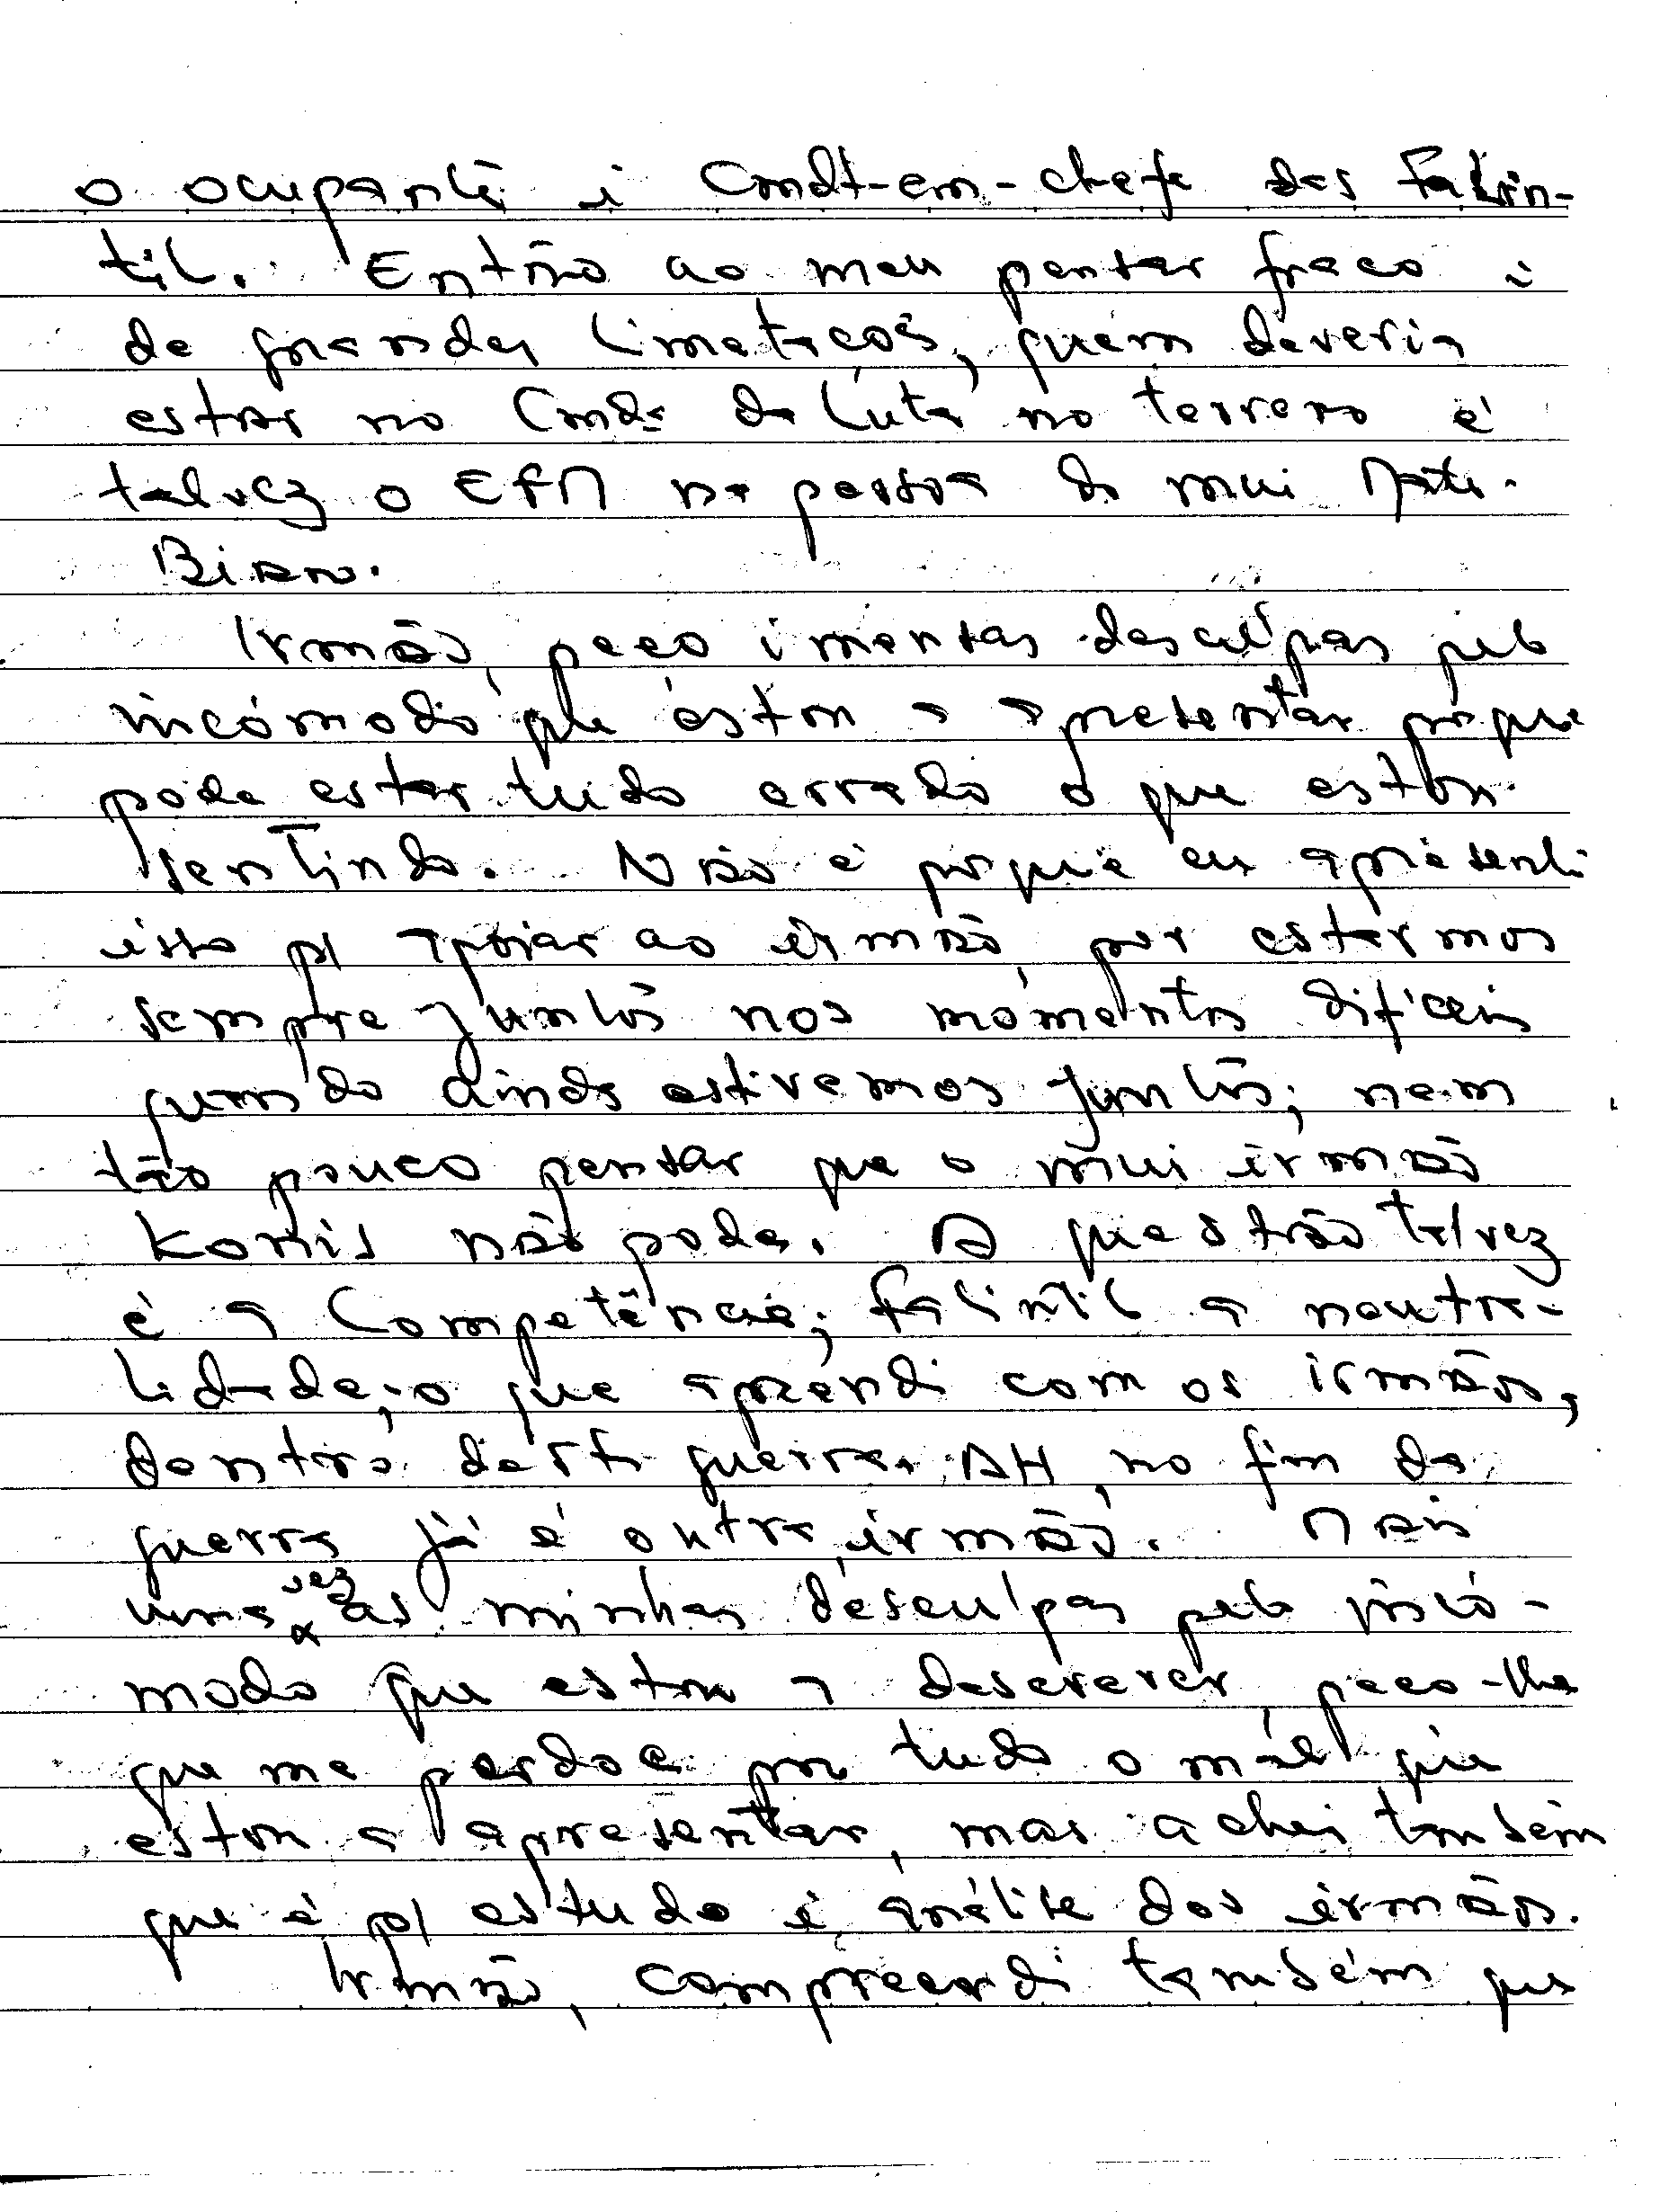 o ocupante i Cmdt-em-chefe das Falin-
til. Então ao meu pensar fraco i
de grandes limetacos, quem deveria
estar no Cmdº da Luta no terreno é
talvez o EFM na pessoa do mui Mate.
Biano.
Irmão, peço imensas desculpas pelo
incómodo que estou a apresentar porque
pode estar tudo errado o que estou
sentindo. Não é porque eu apresenti
isto p/ apoiar ao irmão, por estarmos
sempre juntos nos momentos difíceis
quando ainda estivemos juntos; nem
tão pouco pensar que o mui irmão
Konis não pode. A questão talvez
é a competência; Falintil a neutra-
lidade; o que aprendi com os irmãos,
dentro desta guerra. AH, no fim da
guerra já é outra, irmão. Mais
uma vez as minhas desculpas pelo incó-
modo que estou a descrever, peço-lhe
que me perdoe por tudo o mál que
estou a apresentar, mas achei também
que é p/ estudo i análise dos irmãos.
Irmão, compreendi também que